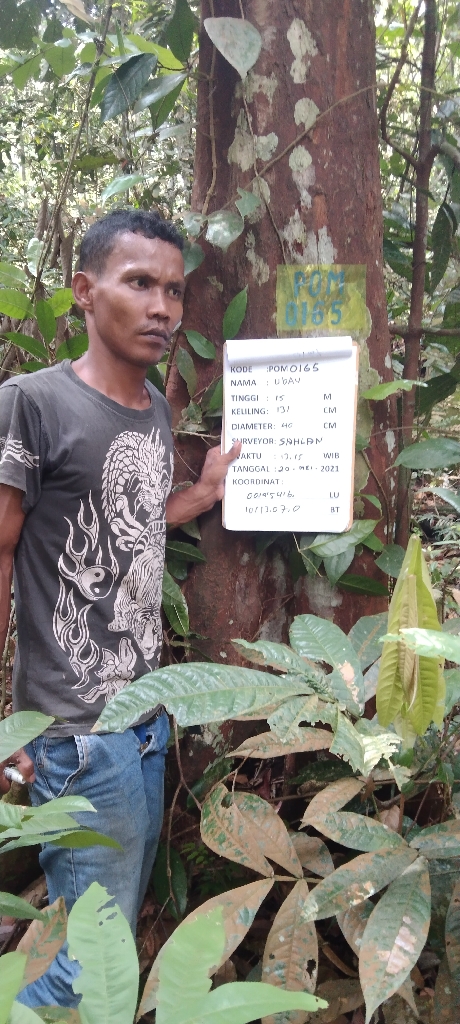 POM
0165
KODE : POM0165
NAMA : UBAH
TINGGI : 15 M
KELILING : 131 CM
DIAMETER : 40 CM
SURVEYOR : SAHLAN
WAKTU : 13.15 WIB
TANGGAL : 20-MEI-2021
KOORDINAT :
LU
BT